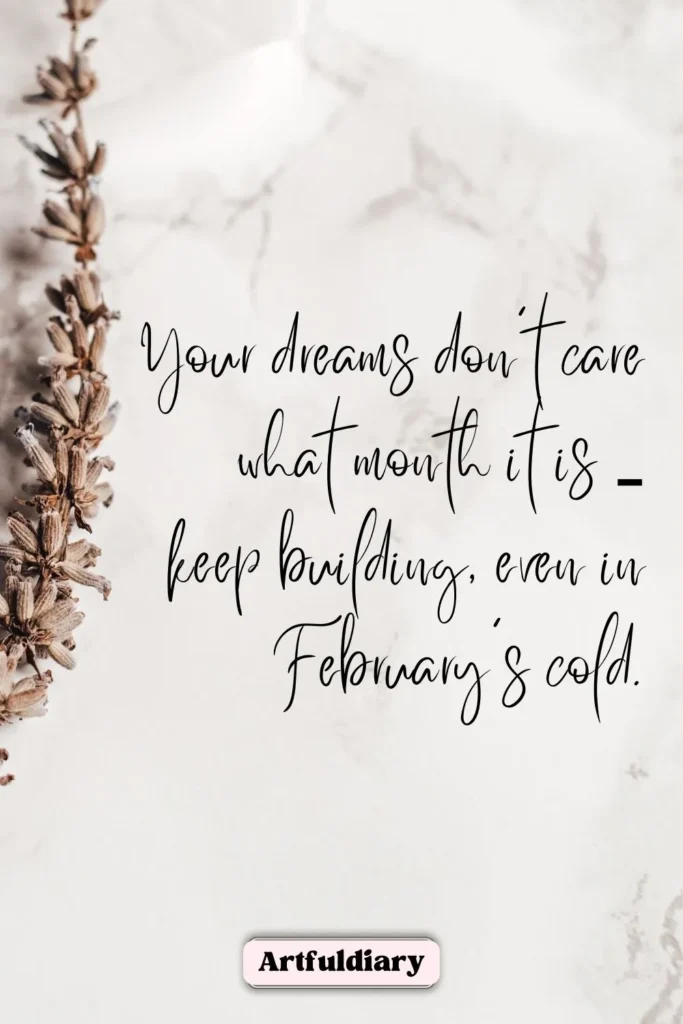 Your dreams don't care
what month it is –
keep building, even in
February's cold.
Artfuldiary